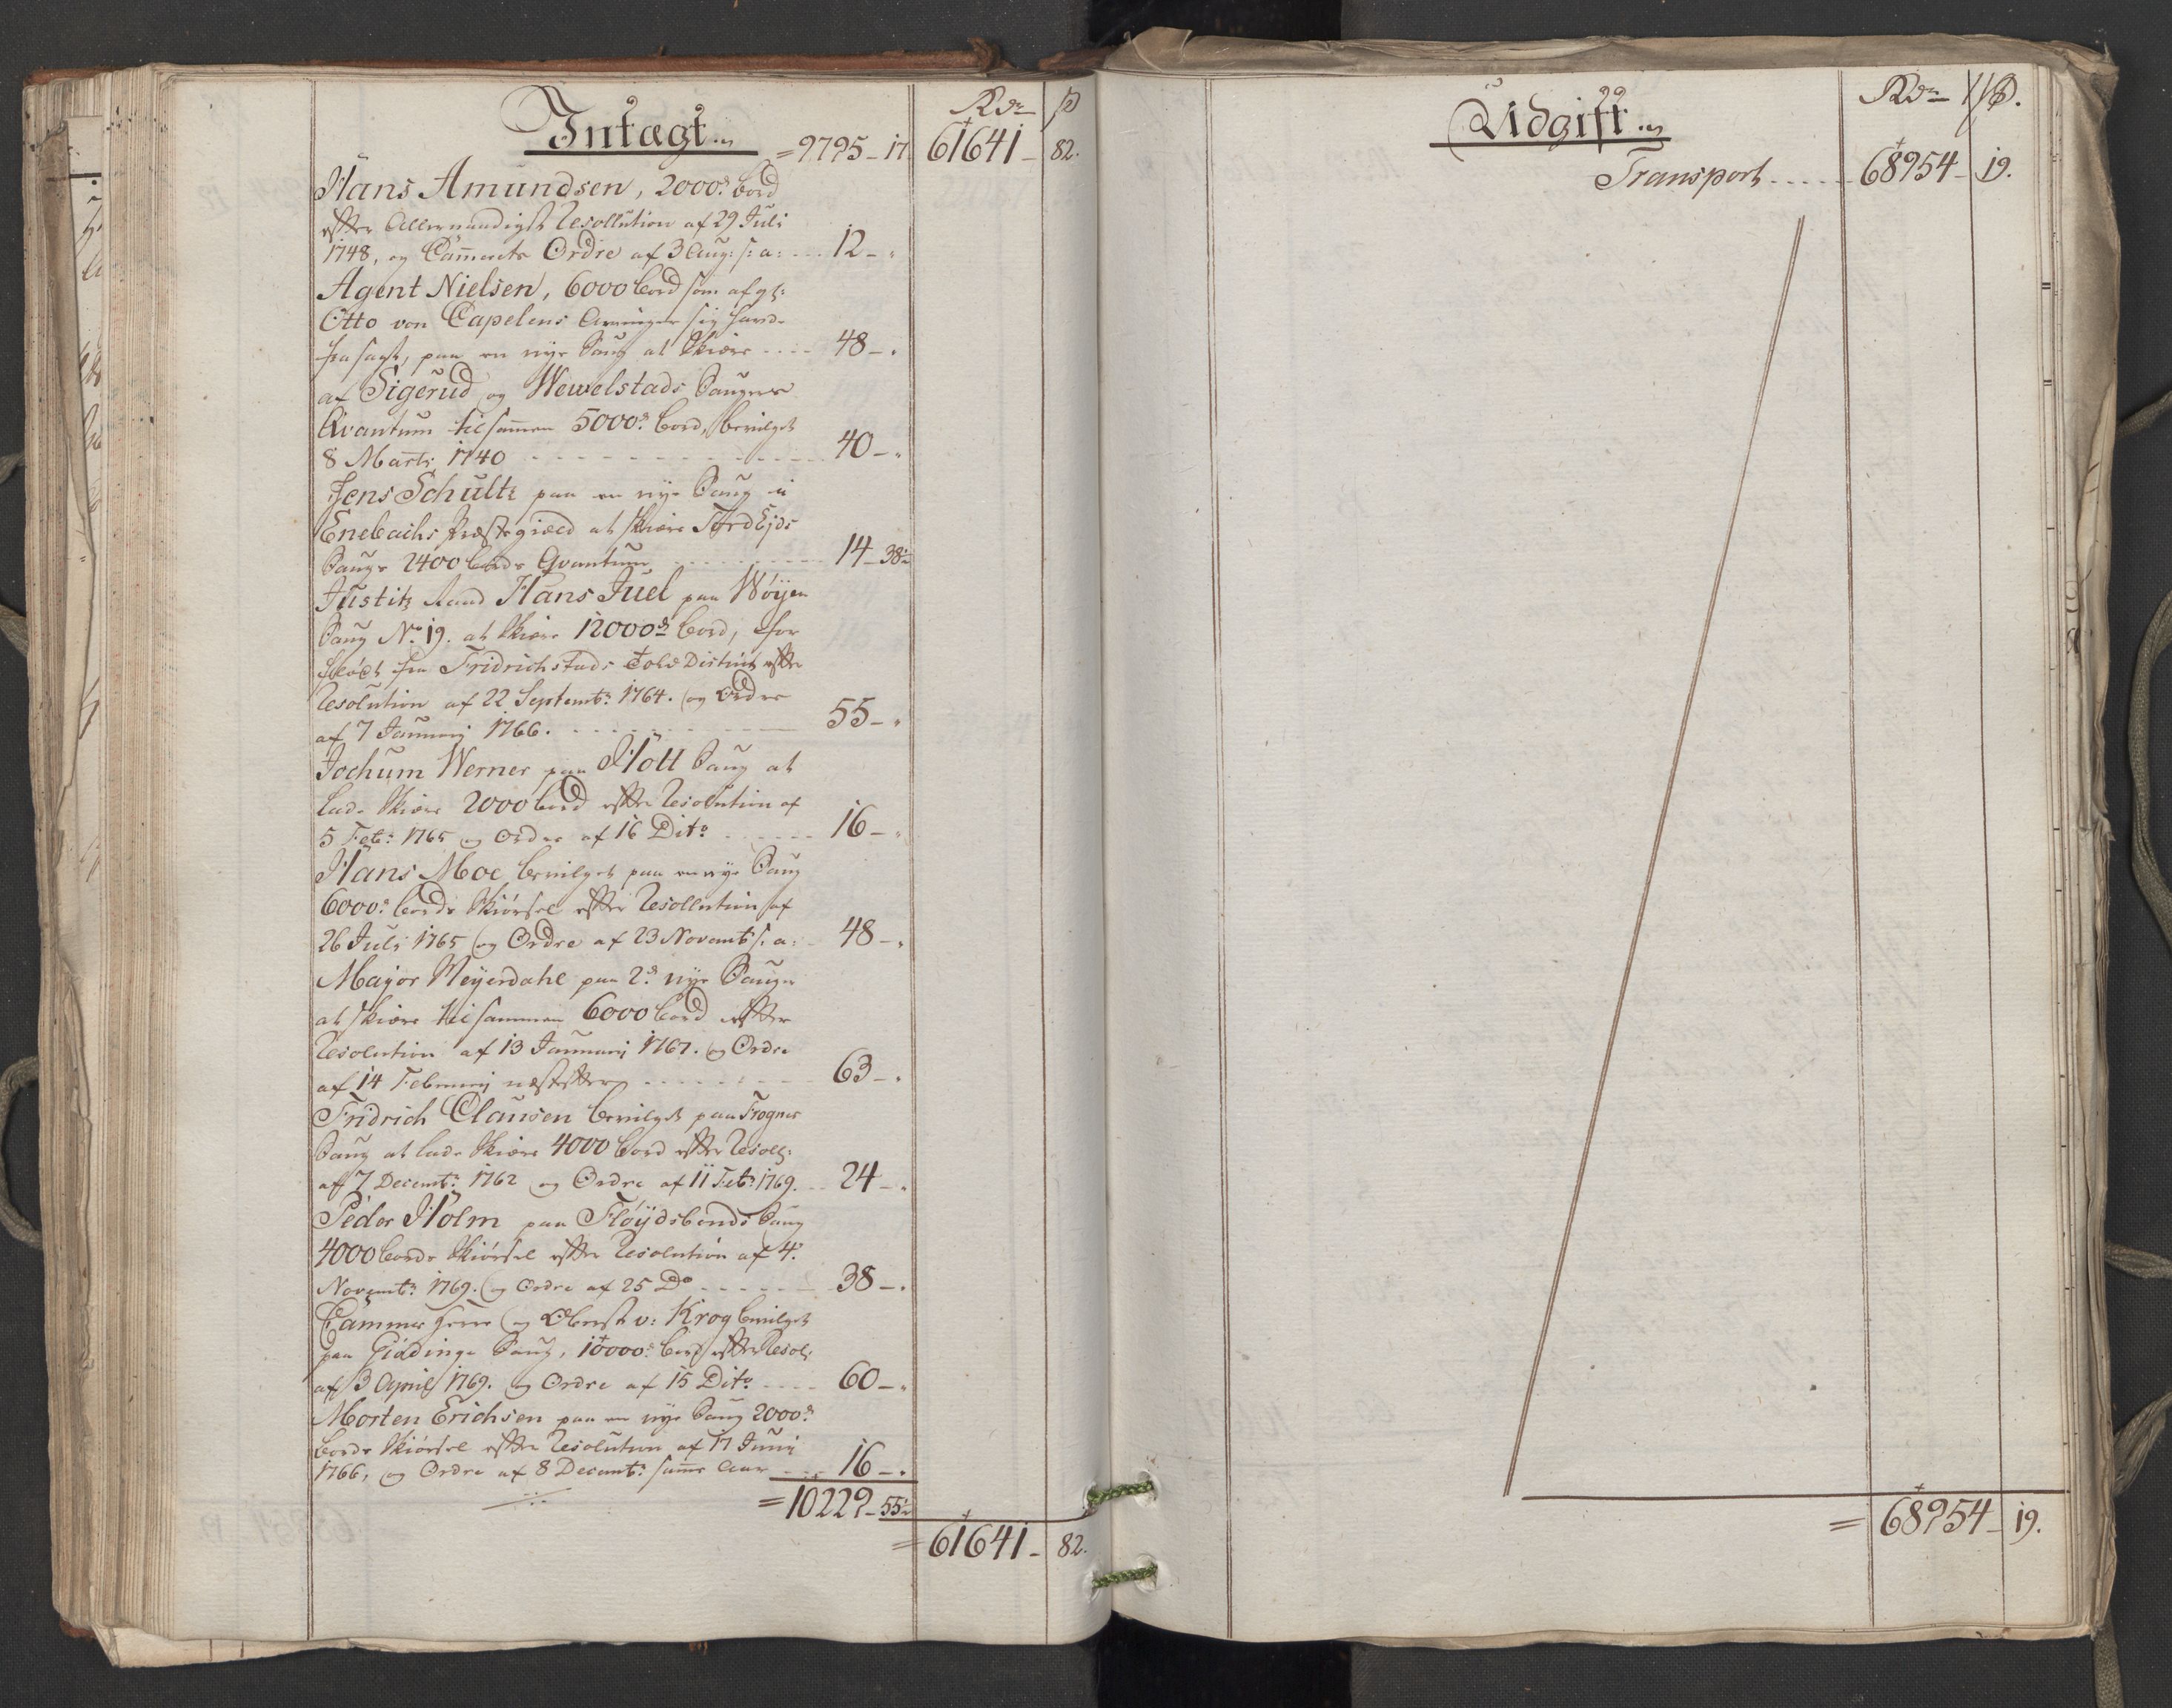 Indtægt.
Rdr ß
= 9795 - 17. 61641 - 82.
Hans Amundsen, 2000de bord
efter Allernaadigst Resollution af 29 Juli
1748, og Cammerets Ordre af 3 Aug: s: a: ... 12 - "
Agent Nielsen, 6000 bord som afg:
Otto von Capelens Arvinger sig havde
fra sagt, paa en nye Saug at skiære .... 48 - "
af Sigerud og Wewelstads Saugers
Qvantum tilsammen 5000de bord, bevilget
8 Marti 1740 ........ 40 - "
Jens Schultz paa en nye Saug i
Enebachs Præstegield at skiære
Saugs 2400 bords Qvantum ....... 14 - 38½
Justitz Raad Hans Juel paa Wøyen
Saug No 19. at skiære 12000de bord, for
fløtt fra Fridrichstads Told District efter
Resolution af 22 Septembr: 1764. og Ordre
af 7 Januarj 1766. ........ 55 - "
Jochum Werner paa Holt Saug at
lade skiære 2000 bord efter Resolution af
5 Febr: 1765 og Ordre af 16 Dito ...... 16 - "
Hans Moe bevilget paa en nye Saug
6000de bords skiørsel efter Resollution af
26 Juli 1765 og Ordre af 23 Novembr s: a: - 48 - "
Major Meyerdahl paa 2de nye Sauger
at skiære tilsammen 6000 bord efter
Resolution af 13 Januarj 1767. og Ordre
af 14 Februarj næstefter ....... 63 - "
Fridrich Clausen bevilget paa Frogner
Saug at lade skiære 4000 bord efter Resol:
af 7 Decembr: 1762 og Ordre af 11 Febr: 1769. .. 24 - "
Peder Holm paa Fløydsbonds Saug
4000 bords skiørsel efter Resolution af 4de
Novembr: 1769. og Ordre af 25 Do ...... 38 - "
Cammer Herre og Oberst v: Krog bevilget
paa Saug, 10000de bord efter Resol:
af 3 April 1769. og Ordre af 15 Dito .... 60 - "
Morten Erichsen paa en nye Saug 2000de
bords skiørsel efter Resolution af 17 Junij
1766, og Ordre af 8 Decembr: samme Aar ... 16 - "
= 10229 - 55½
= 61641 - 82.
Udgift.
Rdr ß.
Transport ..... 68954 - 19.
= 68954 - 19.